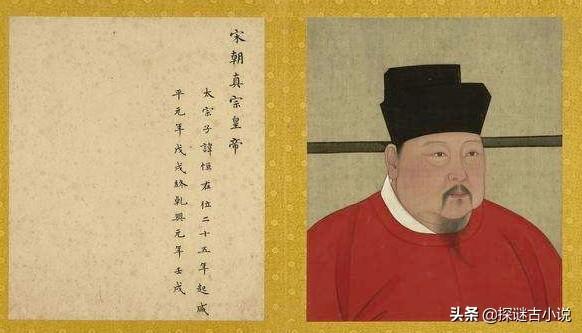 宋朝真宗皇帝
太宗子諱恒在位二十五年起咸
平元年戊戌終乾興元年壬戌
头条 @探谜古小说